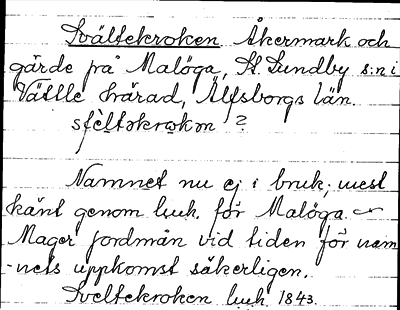 Svältekroken Åkermark och
gärde på Malöga, St. Lundby s:n i
Vättle härad, Älfsborgs län.
Namnet nu ej i bruk, mest
känt genom huh. för Malöga.
Mager jordmån vid tiden för nam
-nets uppkomst säkerligen.
Sveltekroken huh 1843.